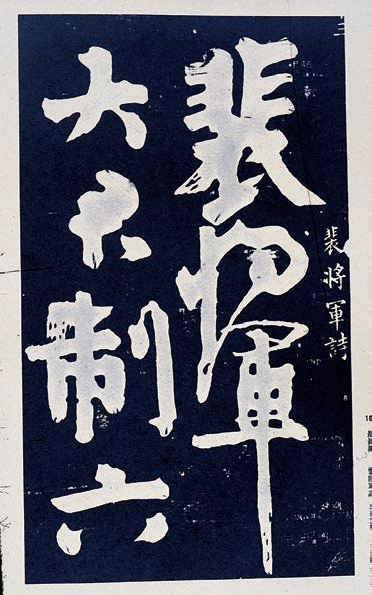 裴將軍詩
裴將軍
大君制六